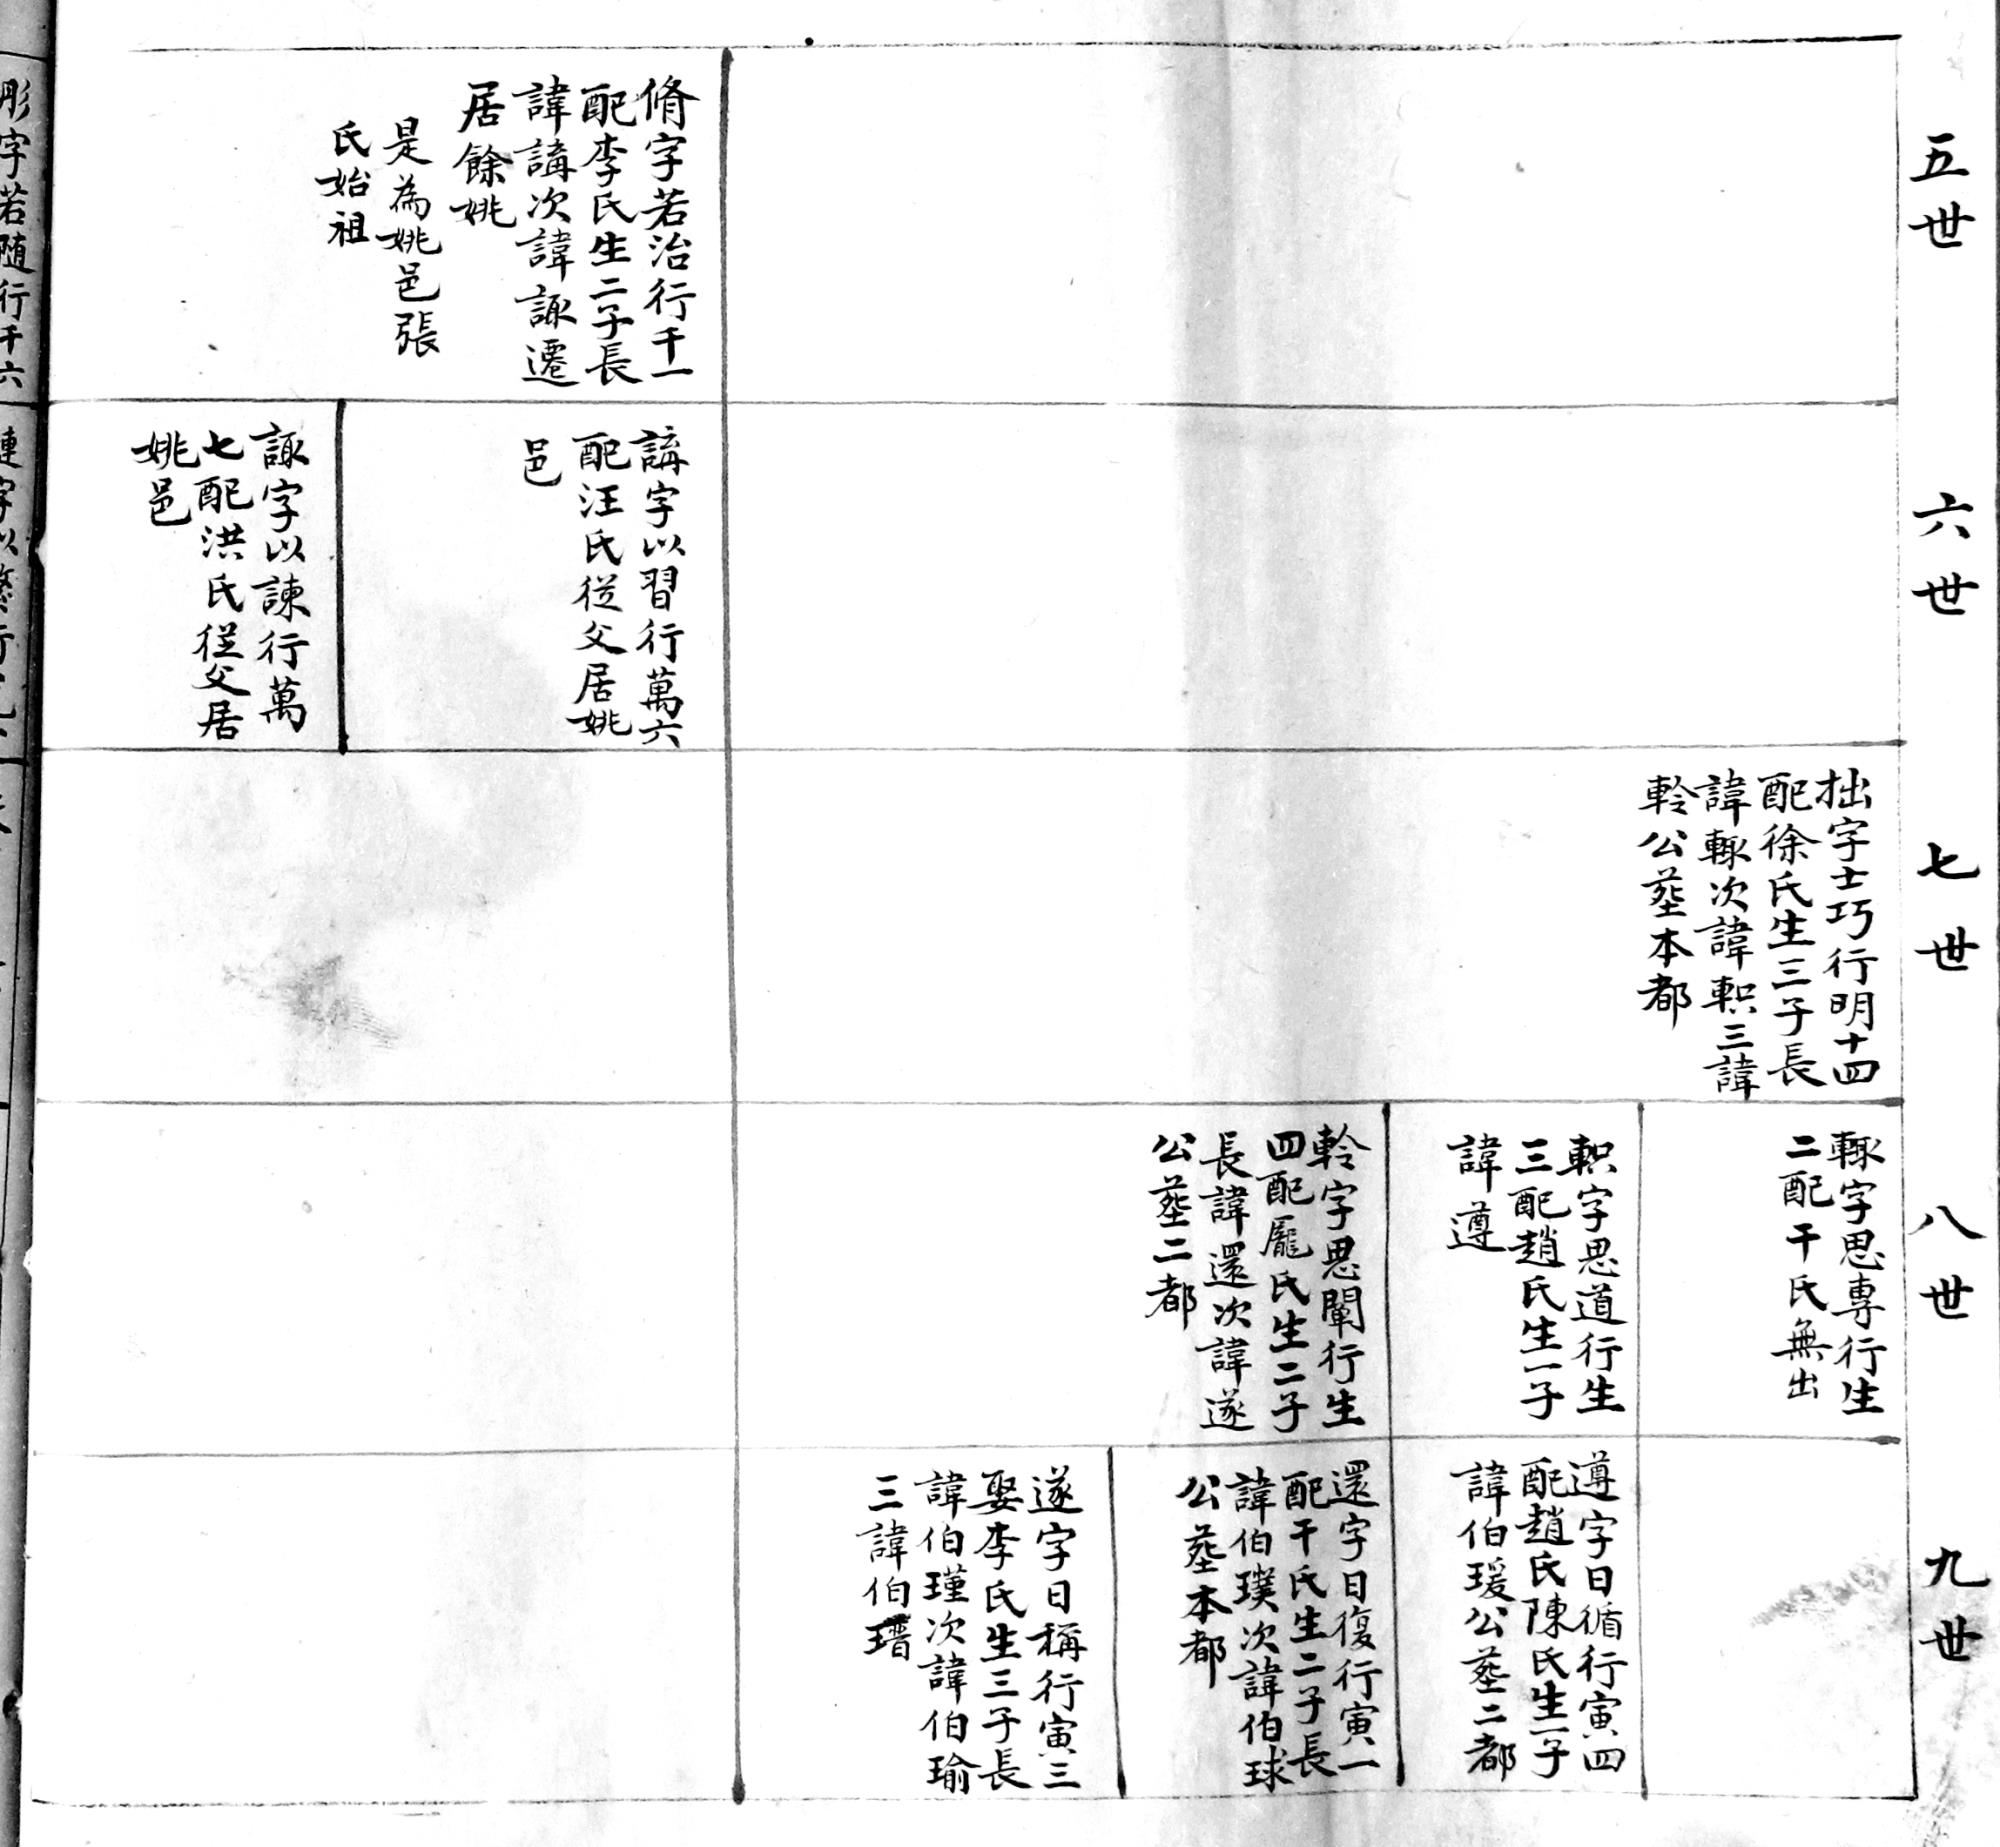 五世
脩字若治行千一
配李氏生二子長
諱講次諱諏遷
居餘姚
是為姚邑張
氏始祖
六世
講字以習行萬六
配汪氏從父居姚
邑
諏字以諫行萬
七配洪氏從父居
姚邑
七世
拙字士巧行明十四
配徐氏生三子長
諱輙次諱軹三諱
軨公塟本都
八世
輙字思專行生
二配干氏無出
軹字思道行生
三配趙氏生一子
諱遵
軨字思闡行生
四配龎氏生二子
長諱還次諱遂
公塟二都
九世
遵字日循行寅四
配趙氏陳氏生一子
諱伯瑗公塟二都
還字日復行寅一
配干氏生二子長
諱伯璞次諱伯球
公塟本都
遂字日稱行寅三
娶李氏生三子長
諱伯瑾次諱伯瑜
三諱伯瑨
彤字若随行千六